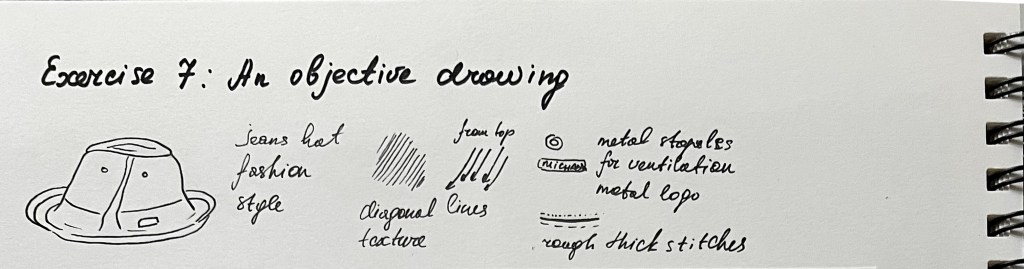 Exercise 7: An objective drawing
jeans hat
fashion
style
from top
diagonal lines
texture
metal stapeles
for ventilation
metal logo
rough thick stitches